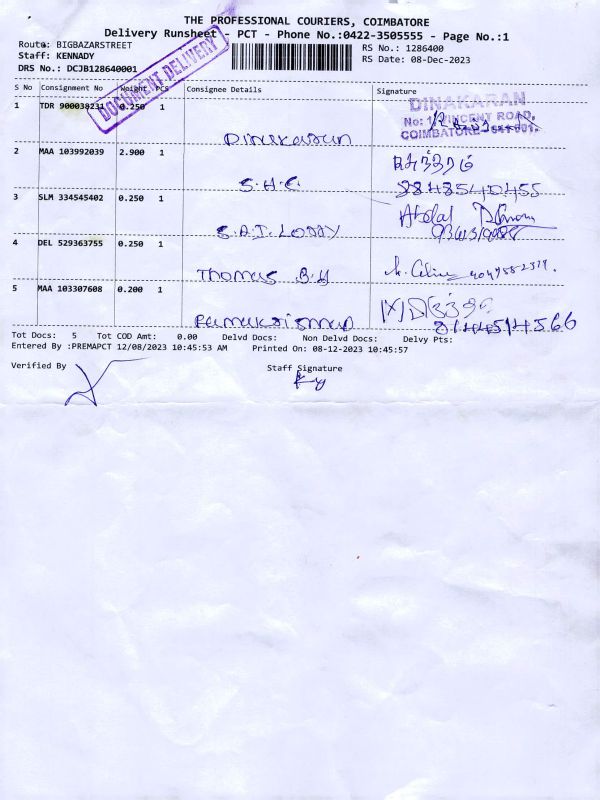 THE PROFESSIONAL COURIERS, COIMBATORE
Delivery Runsheet - PCT - Phone No.:0422-3505555 - Page No.:1
Route: BIGBAZARSTREET
RS No.: 1286400
Staff: KENNADY
RS Date: 08-Dec-2023
DRS No.: DCJB128640001
DOCUMENT DELIVERY
S No Consignment No Weight PCS Consignee Details Signature
1 TDR 900038231 0.250 1
DINAKARAN
VINCENT ROAD,
COIMBATORE
Dinakaran
2 MAA 103992039 2.900 1
S.H.C
3 SLM 334545402 0.250 1
4 DEL 529363755 0.250 1
Thomas
5 MAA 103307608 0.200 1
8144514566
Tot Docs: 5 Tot COD Amt: 0.00 Delvd Docs: Non Delvd Docs: Delvy Pts:
Entered By :PREMAPCT 12/08/2023 10:45:53 AM Printed On: 08-12-2023 10:45:57
Verified By
Staff Signature